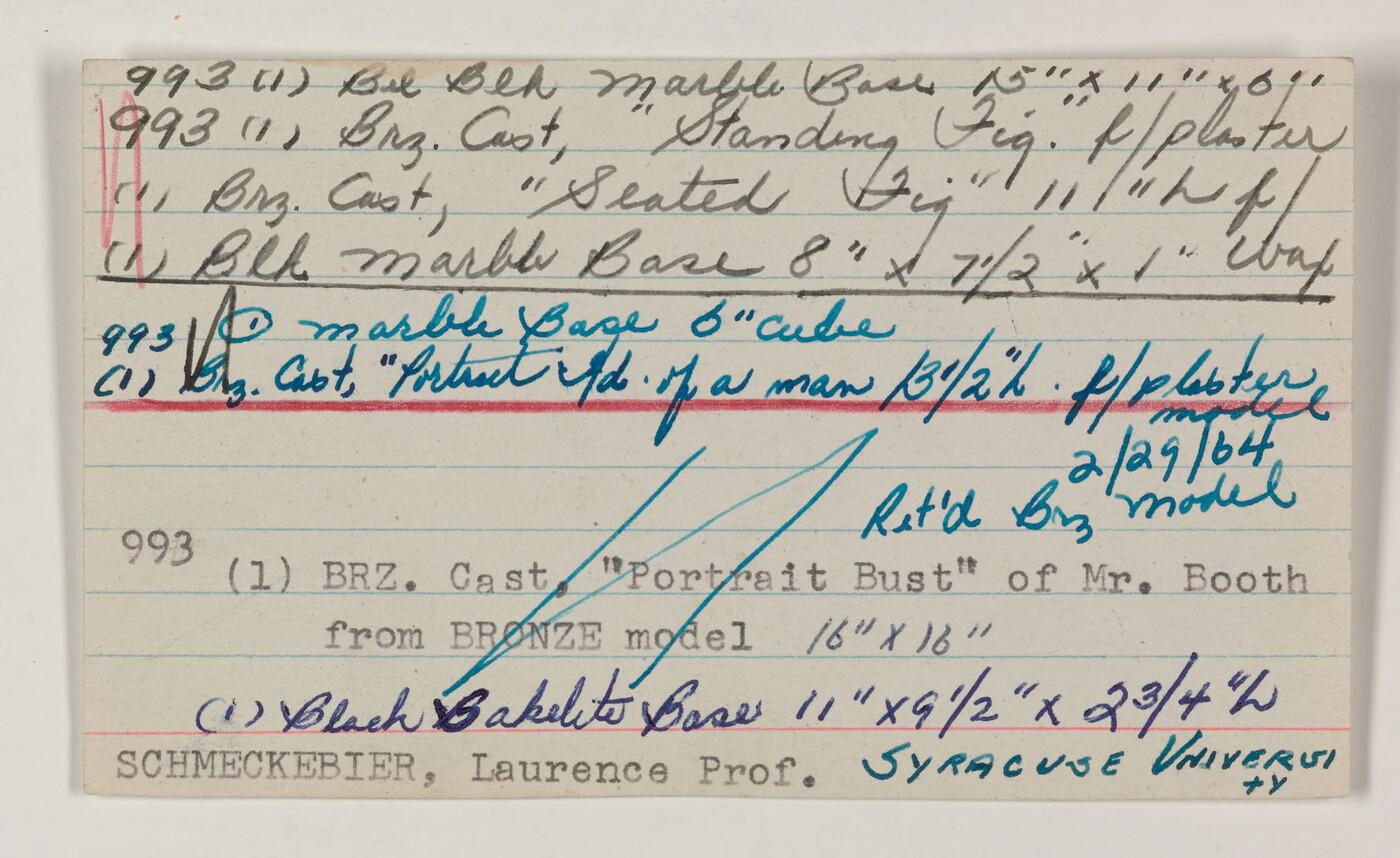 993 (1) Bel Blk marble Base 15" x 11" x 6"
993 (1) Brz. Cast, "Standing Fig." f/plaster
(1) Brz. Cast, "Seated Fig" 11" h f/
(1) Blk marble Base 8" x 7 1/2" x 1" Wax
993 (1) marble Base 6" cube
(1) Brz. Cast, "Portrait Hd. of a man 13 1/2" h. f/plaster
model
2/29/64
Ret'd Brz model
993
(1) BRZ. Cast, "Portrait Bust" of Mr. Booth
from BRONZE model 16" x 16"
(1) Black Bakelite Base 11" x 9 1/2" x 2 3/4" h
SCHMECKEBIER, Laurence Prof. SYRACUSE UNIVERSI
TY